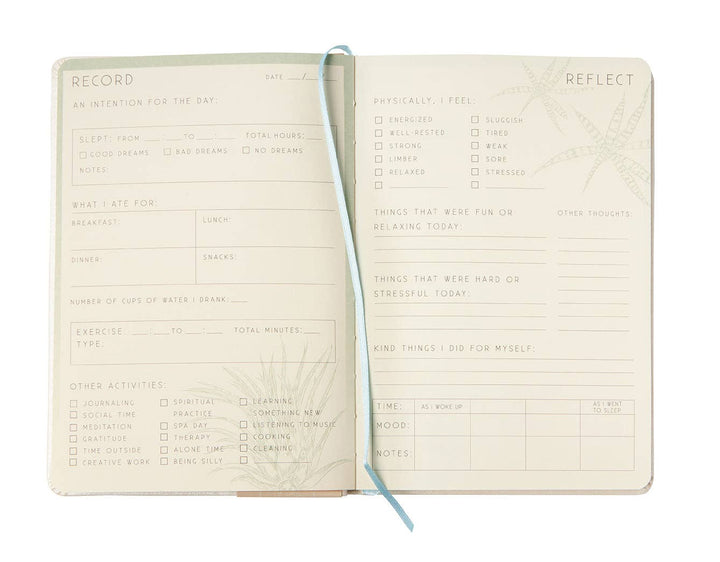 RECORD
DATE __/__/__
AN INTENTION FOR THE DAY:
SLEPT: FROM __:__ TO __:__ TOTAL HOURS:
GOOD DREAMS BAD DREAMS NO DREAMS
NOTES:
WHAT I ATE FOR:
BREAKFAST: LUNCH:
DINNER: SNACKS:
NUMBER OF CUPS OF WATER I DRANK:
EXERCISE __:__ TO __:__ TOTAL MINUTES:
TYPE:
OTHER ACTIVITIES:
JOURNALING
SOCIAL TIME
MEDITATION
GRATITUDE
TIME OUTSIDE
CREATIVE WORK
SPIRITUAL
PRACTICE
SPA DAY
THERAPY
ALONE TIME
BEING SILLY
LEARNING
SOMETHING NEW
LISTENING TO MUSIC
COOKING
CLEANING
REFLECT
PHYSICALLY, I FEEL:
ENERGIZED
WELL-RESTED
STRONG
LIMBER
RELAXED
SLUGGISH
TIRED
WEAK
SORE
STRESSED
THINGS THAT WERE FUN OR
RELAXING TODAY:
OTHER THOUGHTS:
THINGS THAT WERE HARD OR
STRESSFUL TODAY:
KIND THINGS I DID FOR MYSELF:
TIME: AS I WOKE UP AS I WENT
TO SLEEP
MOOD:
NOTES: